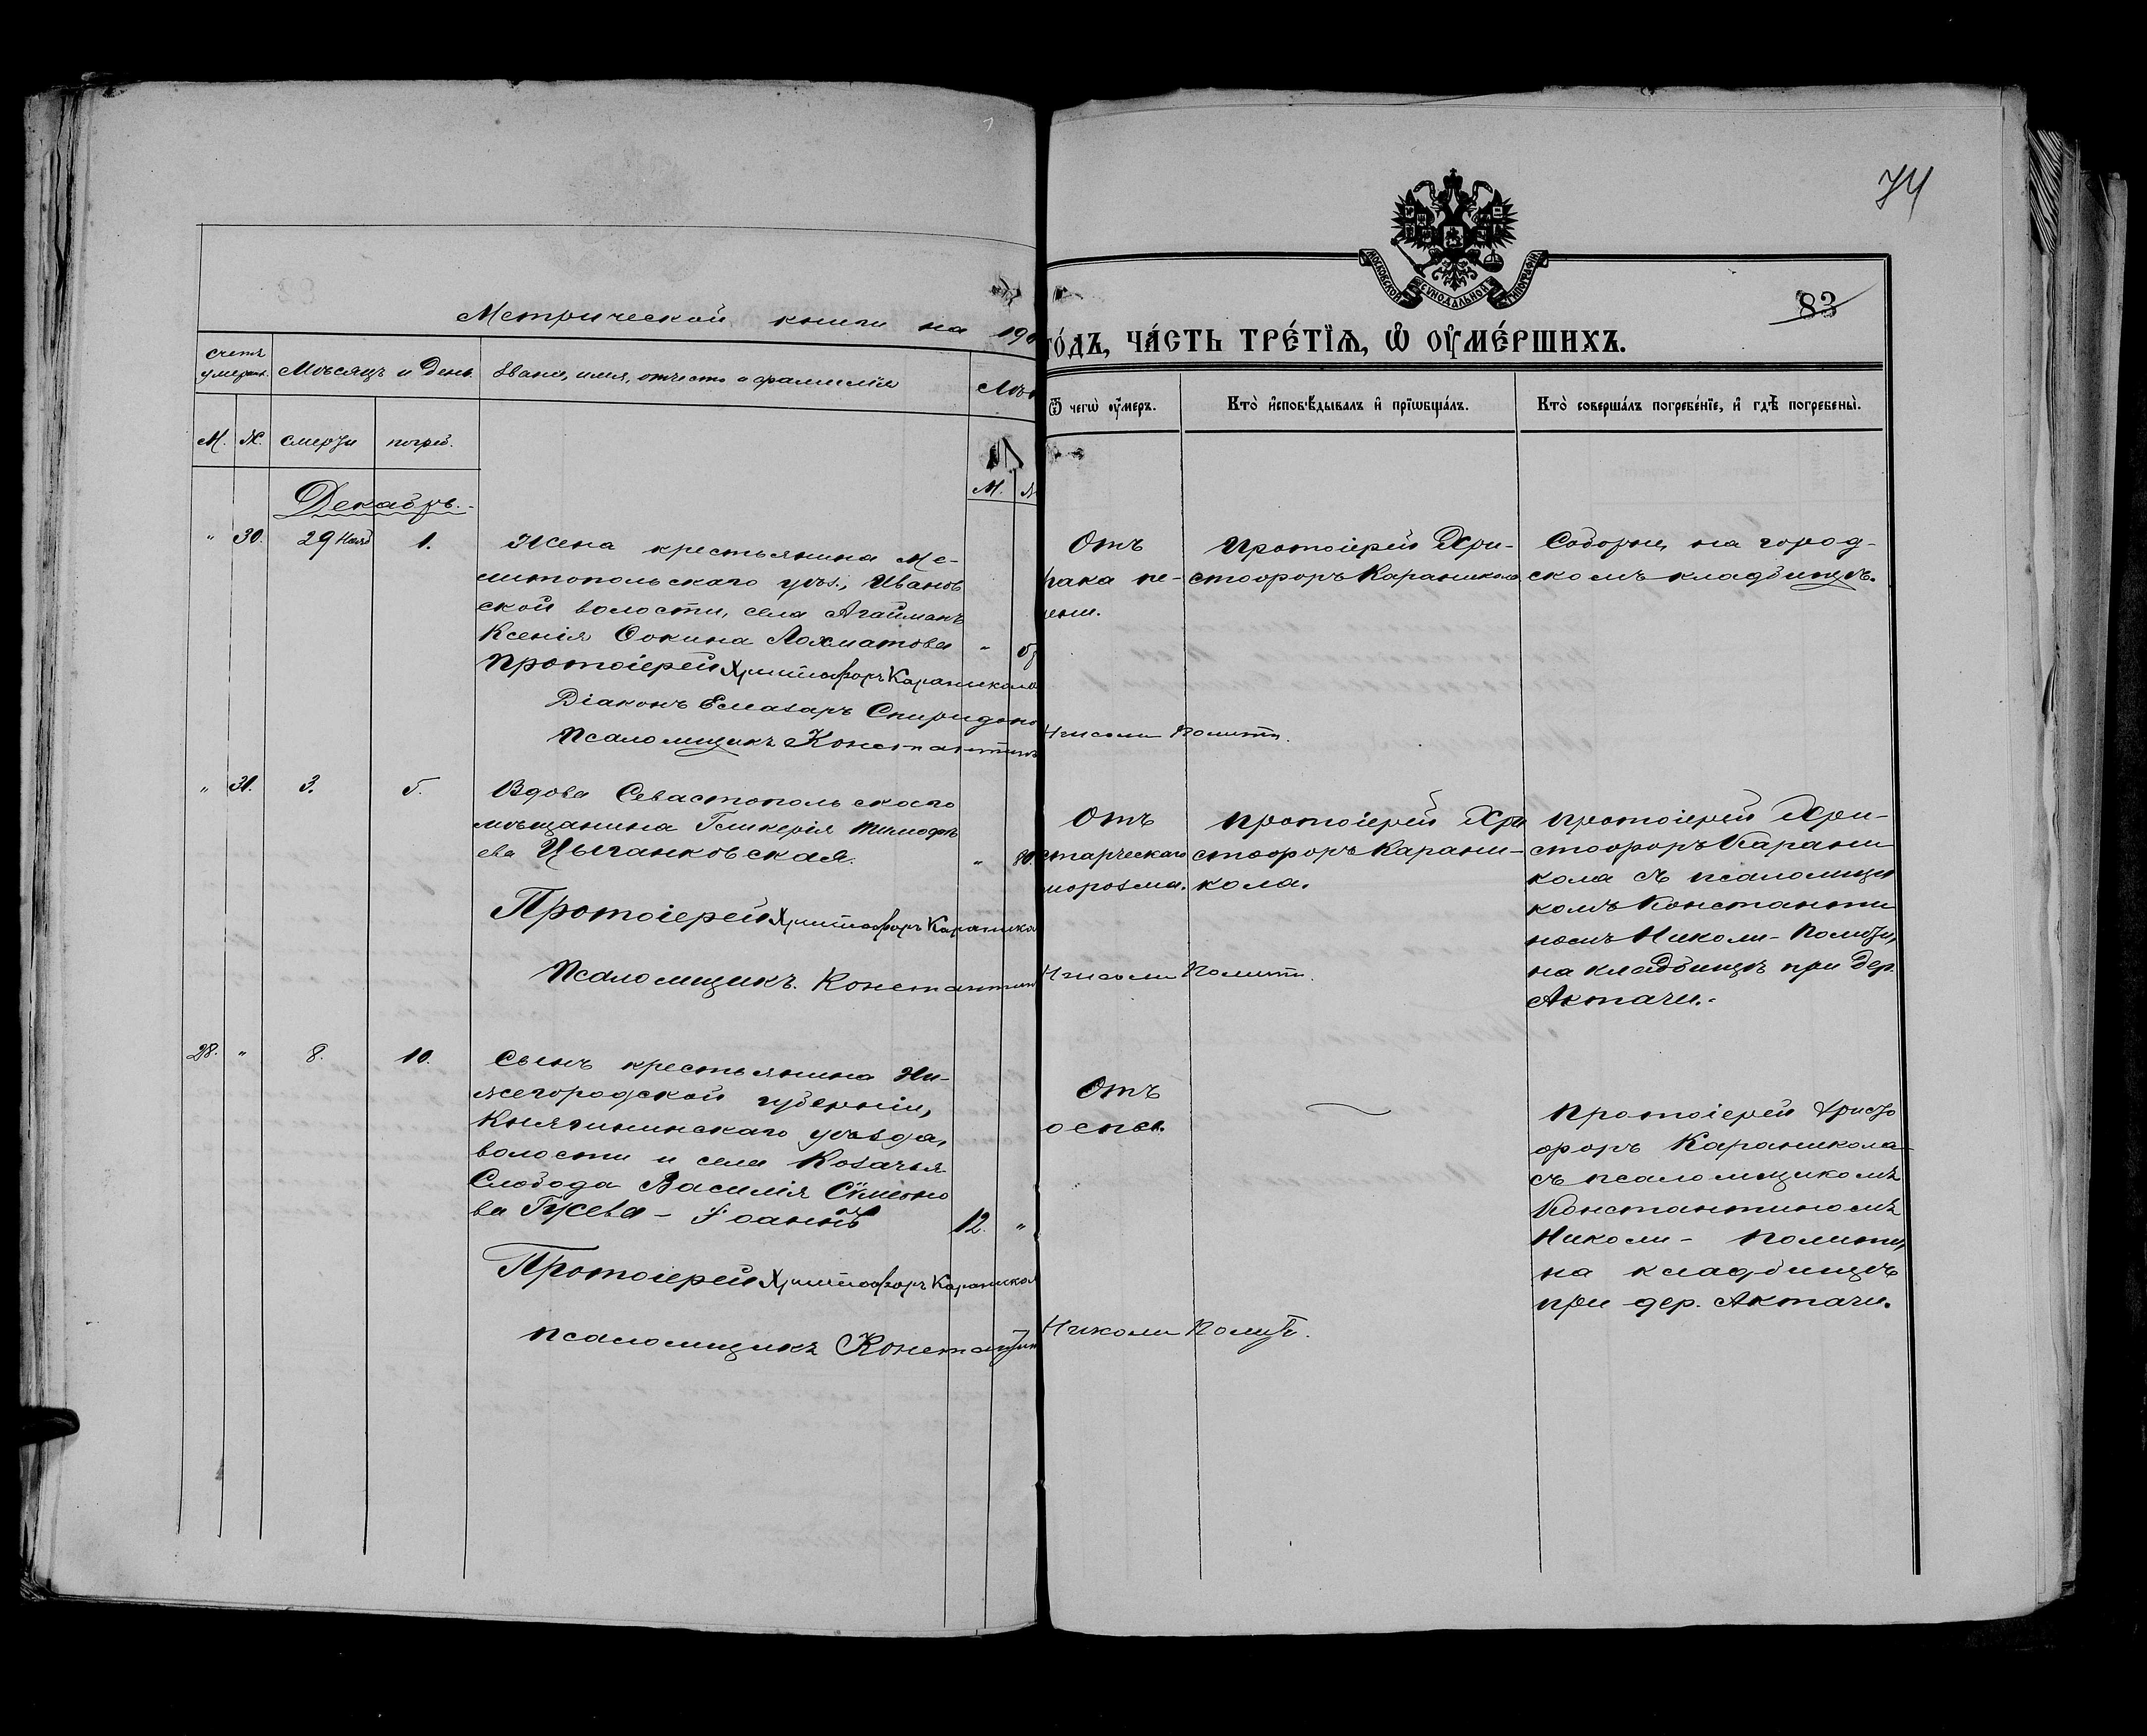 74
83
МОСКОВСКОЙ СѴНОДАЛЬНОЙ ТИПОГРАФІИ
Метрической книги на 190
го́дъ, ча́сть тре́тїѧ, ѡ҆ ᲂу҆ме́ршихъ.
счетъ умерш.
Мѣсяцъ и День.
Званіе, имя, отчество и фамилія
Лѣт
Ѿ чегѡ̀ ᲂу҆́меръ.
Кто̀ и҆сповѣ́дывалъ и҆ прїѡбща́лъ.
Кто̀ соверша́лъ погребе́нїе, и҆ гдѣ̀ погребены̀.
М. Ж. смерти погреб.
М.
Декабрь.
" 30. 29 Нояб 1.
Жена крестьянина Ме-
литопольскаго уѣз., Иванов
ской волости, села Агайманъ
Ксенія Фокина Лохматова "
Протоіерей Христофоръ Караникола
Діаконъ Елеазаръ Спиридоно
Псаломщикъ Константинъ Николи Полити.
Отъ
рака пе-
чени.
Протоіерей Хри-
стофоръ Караникола
Соборне, на город-
скомъ кладбищѣ.
" 31. 3. 5.
Вдова Севастопольскаго
мѣщанина Гликерія Тимофѣ
ева Цыганковская. " 80
Протоіерей Христофоръ Караникола
Псаломщикъ. Константинъ Николи Полити.
Отъ
старческаго
маразма.
Протоіерей Хри
стофоръ Карани-
кола.
Протоіерей Хри-
стофоръ Карани
кола съ псаломщи
комъ Константи
номъ Николи-Полити,
на кладбищѣ при дер.
Актачи.-
28. " 8. 10.
Сынъ крестьянина Ни-
жегородской губерніи,
Княгининскаго уѣзда,
волости и села Козачья
Слобода Василія Сѵмеоно
ва Гусева - Іоаннъ 12. "
Протоіерей Христофоръ Караникола
Псаломщикъ Константинъ Николи Полити.
Отъ
оспы.
Протоіерей Христо
форъ Караникола
съ псаломщикомъ
Константиномъ
Николи- Полити,
на кладбищѣ
при дер. Актачи.